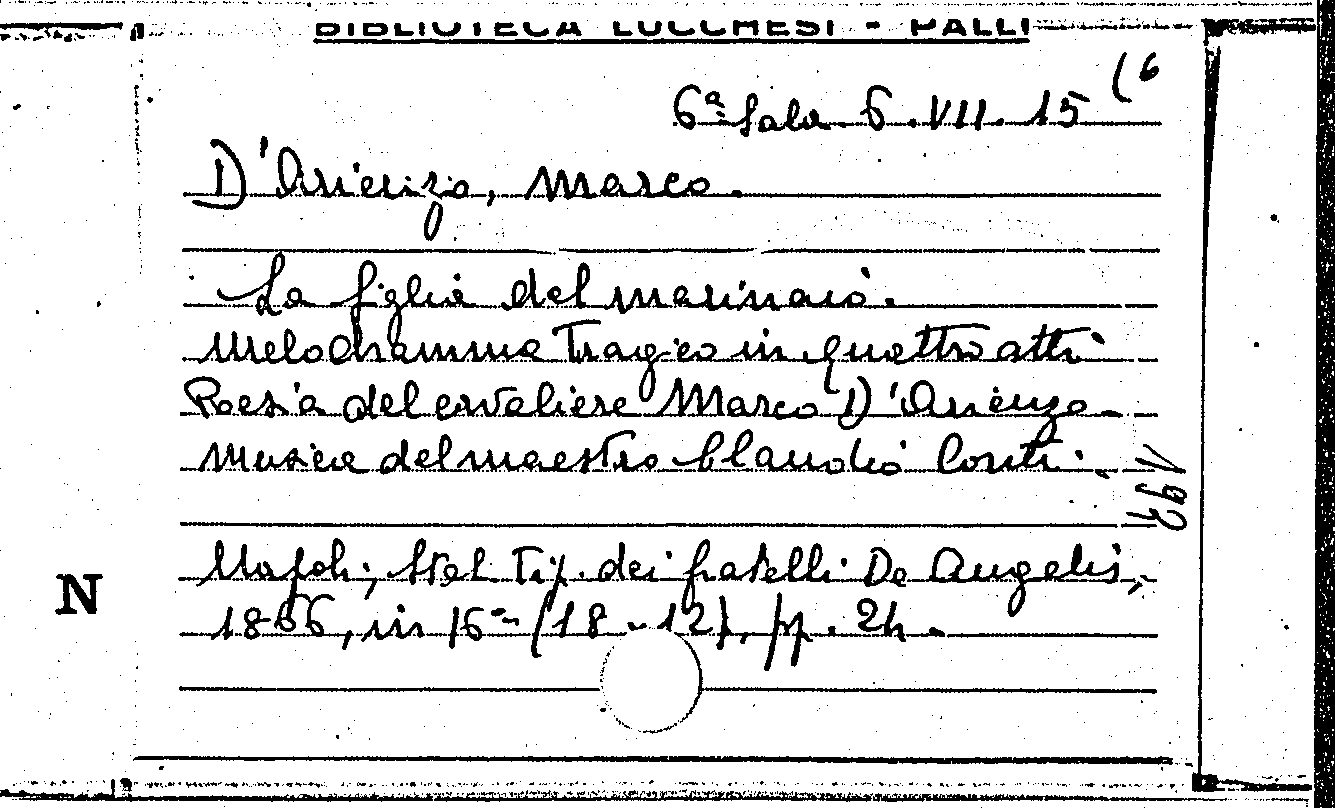 BIBLIOTECA LUCCHESI - PALLI
6ª Sala. 6. VII. 15 (6
D'Arienzo, Marco.
La figlia del marinaio.
Melodramma tragico in quattro atti
Poesia del cavaliere Marco D'Arienzo.
Musica del maestro Claudio Conti.
Napoli, Stab. Tip. dei fratelli De Angelis,
1866, in 16º (18 - 12), pp. 24.
N